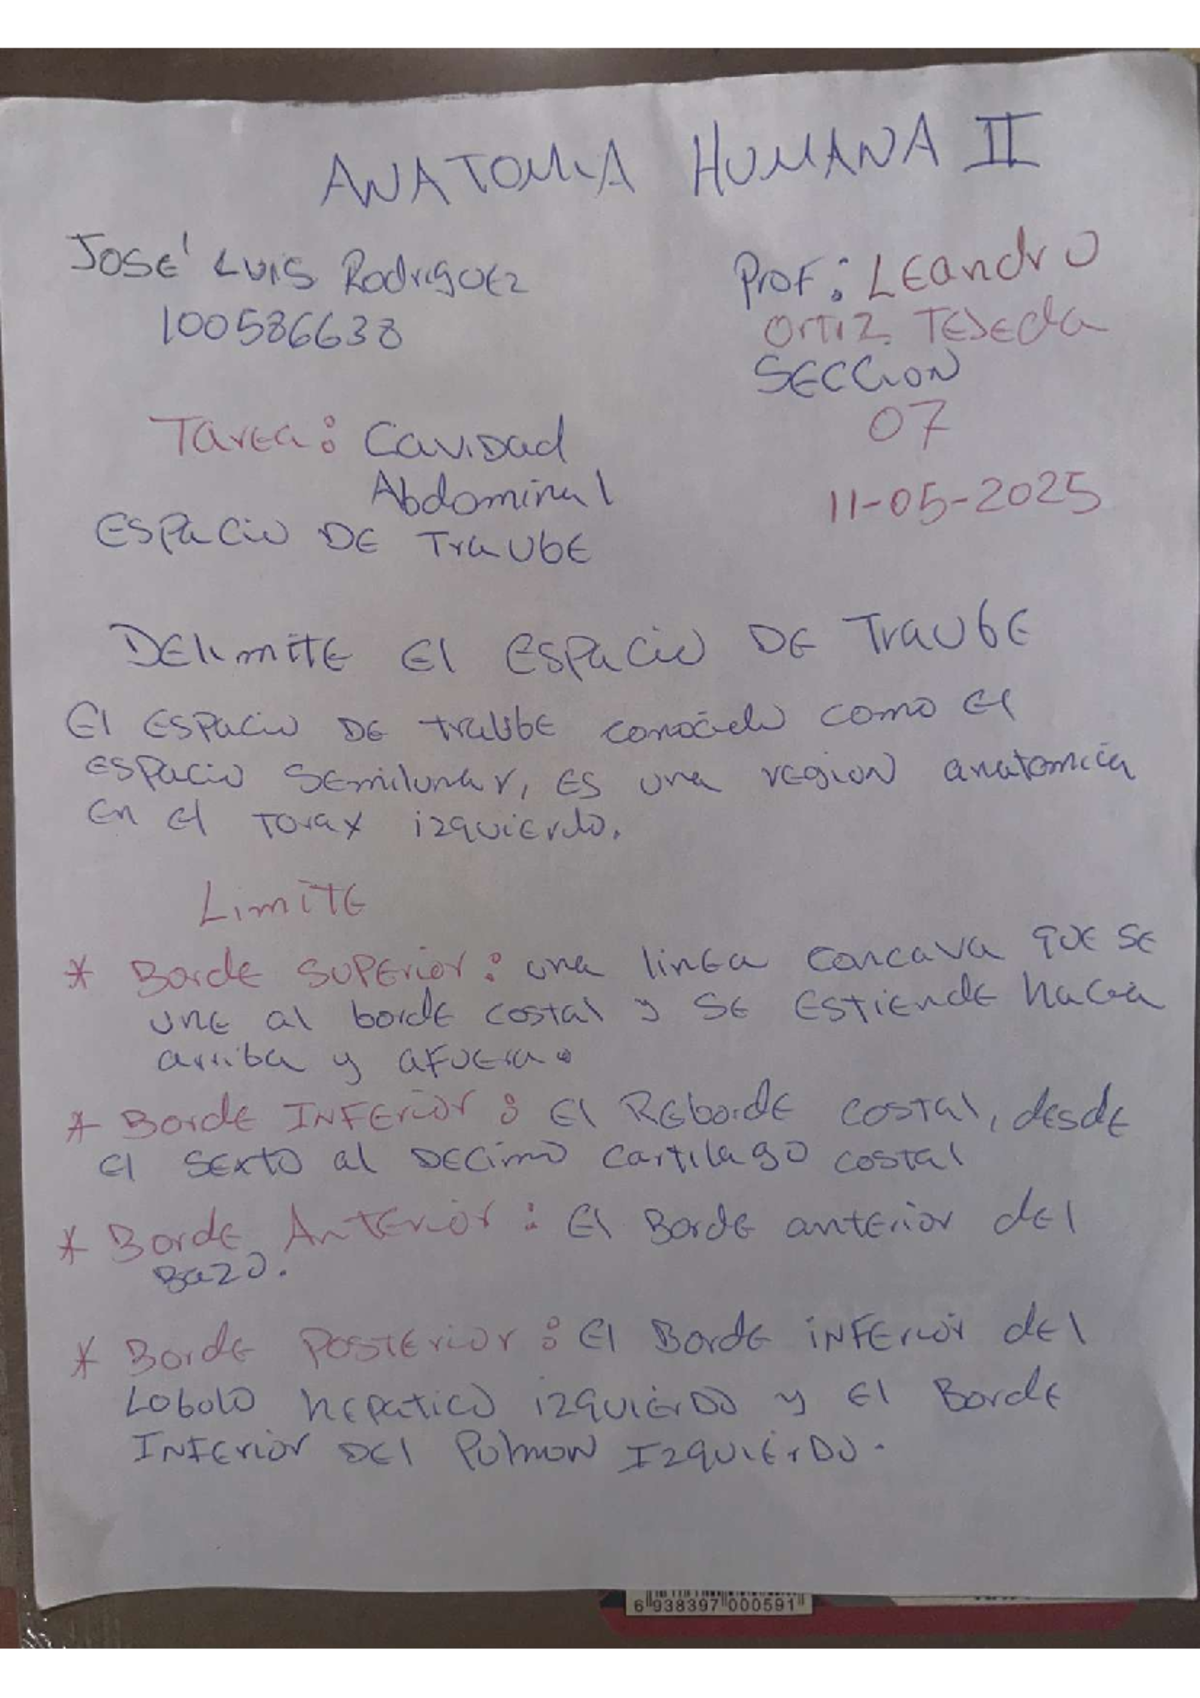 ANATOMIA HUMANA II
José Luis Rodriguez
100586638
Prof: Leandro
Ortiz Tejeda
SECCION
07
11-05-2025
Tarea: Cavidad
Abdominal
Espacio DE Traube
Delimite el espacio DE Traube
El espacio DE traube conocido como el
espacio semilunar, es una region anatomica
en el torax izquierdo.
Limite
* Borde superior: una linea concava que se
une al borde costal y se estiende hacia
arriba y afuera.
* Borde Inferior: el Reborde costal, desde
el sexto al Decimo cartilago costal
* Borde Anterior: el Borde anterior del
Bazo.
* Borde Posterior: el Borde inferior del
Lobulo hepatico izquierdo y el Borde
Inferior Del Pulmon Izquierdo.
6 938397 000591